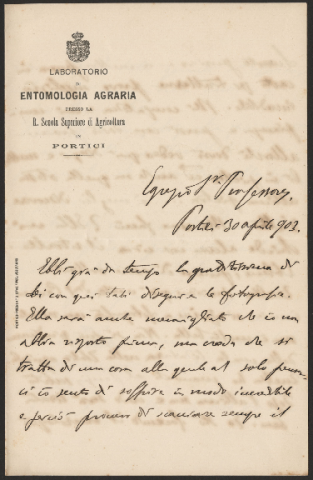 LABORATORIO
DI
ENTOMOLOGIA AGRARIA
PRESSO LA
R. Scuola Superiore di Agricoltura
IN
PORTICI
Egregio Sr. Professore,
Portici 30 aprile 903.
Ebbi già da tempo la graditissima di
Lei con quei dati di segue e le fotografie.
Ella sarà anche meravigliato che io non
abbia risposto prima, ma creda che si
tratta di una cosa alla quale al solo pensar-
ci io sento di soffrire in modo incredibile
e perciò procuro di scansare sempre il